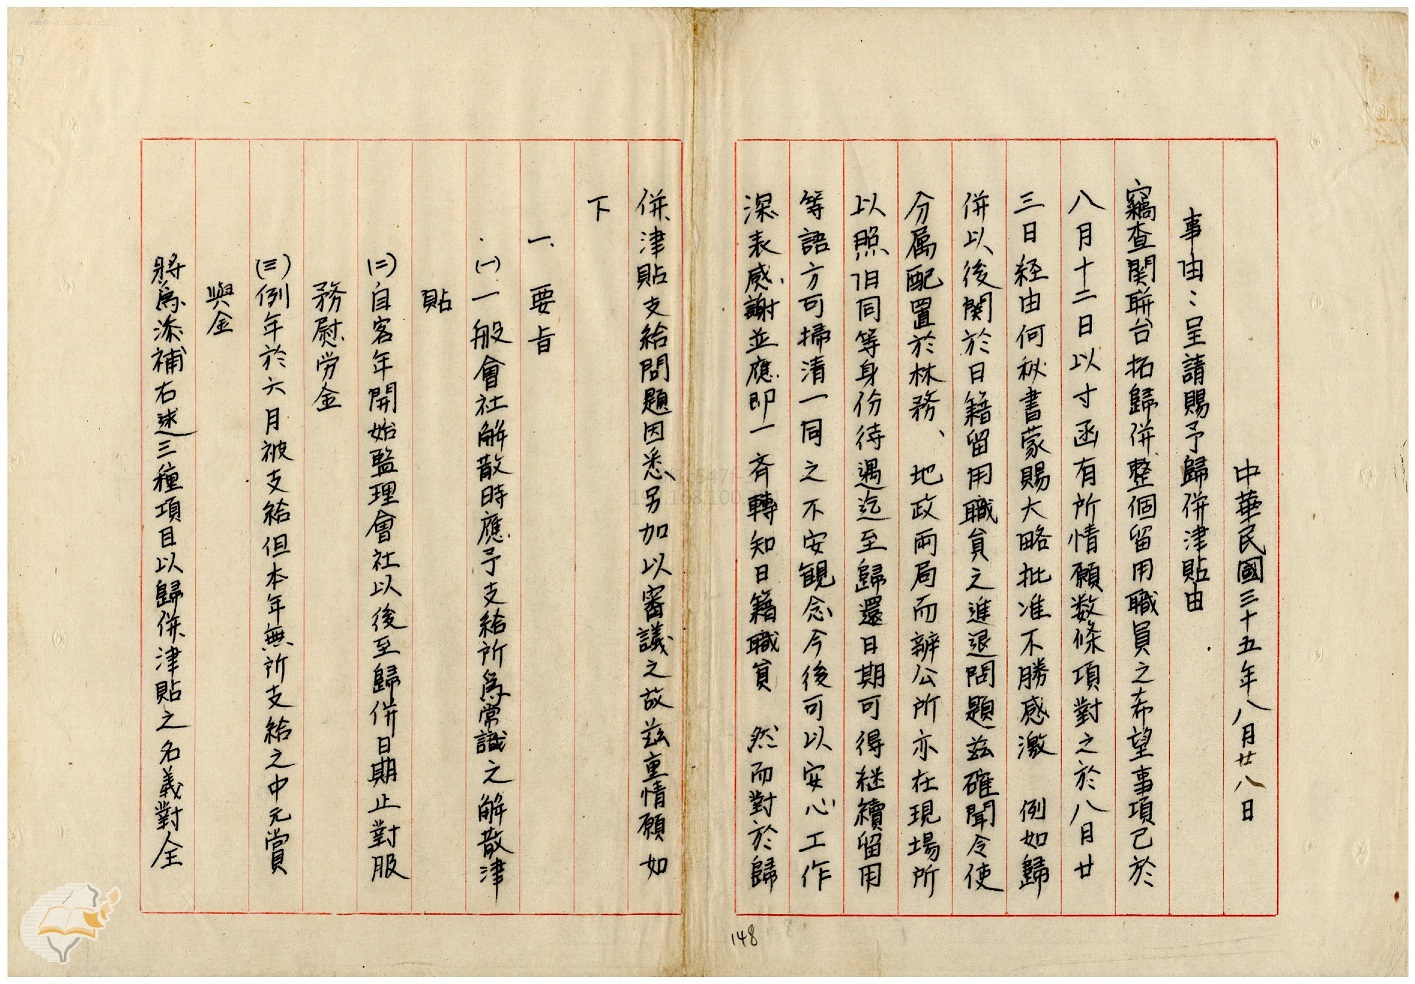 中華民國三十五年八月廿八日
事由：呈請賜予歸併津貼由
竊查関聯台拓歸併整個留用職員之希望事項已於
八月十二日以寸函有所情願数條項對之於八月廿
三日経由何秘書蒙賜大略批准不勝感激　例如歸
併以後関於日籍留用職員之進退問題茲確聞令使
分属配置於林務、地政両局而辦公所亦在現場所
以照旧同等身份待遇迄至歸還日期可得継續留用
等語方可掃清一同之不安観念今後可以安心工作
深表感謝並應即一斉轉知日籍職員　然而對於歸
併津貼支給問題因悉另加以審議之故茲重情願如
下
一、要旨
(一)一般會社解散時應予支給所為常識之解散津
貼
(二)自客年開始監理會社以後至歸併日期止對服
務慰労金
(三)例年於六月被支給但本年無所支給之中元賞
與金
將為添補右述三種項目以歸併津貼之名義對全
148